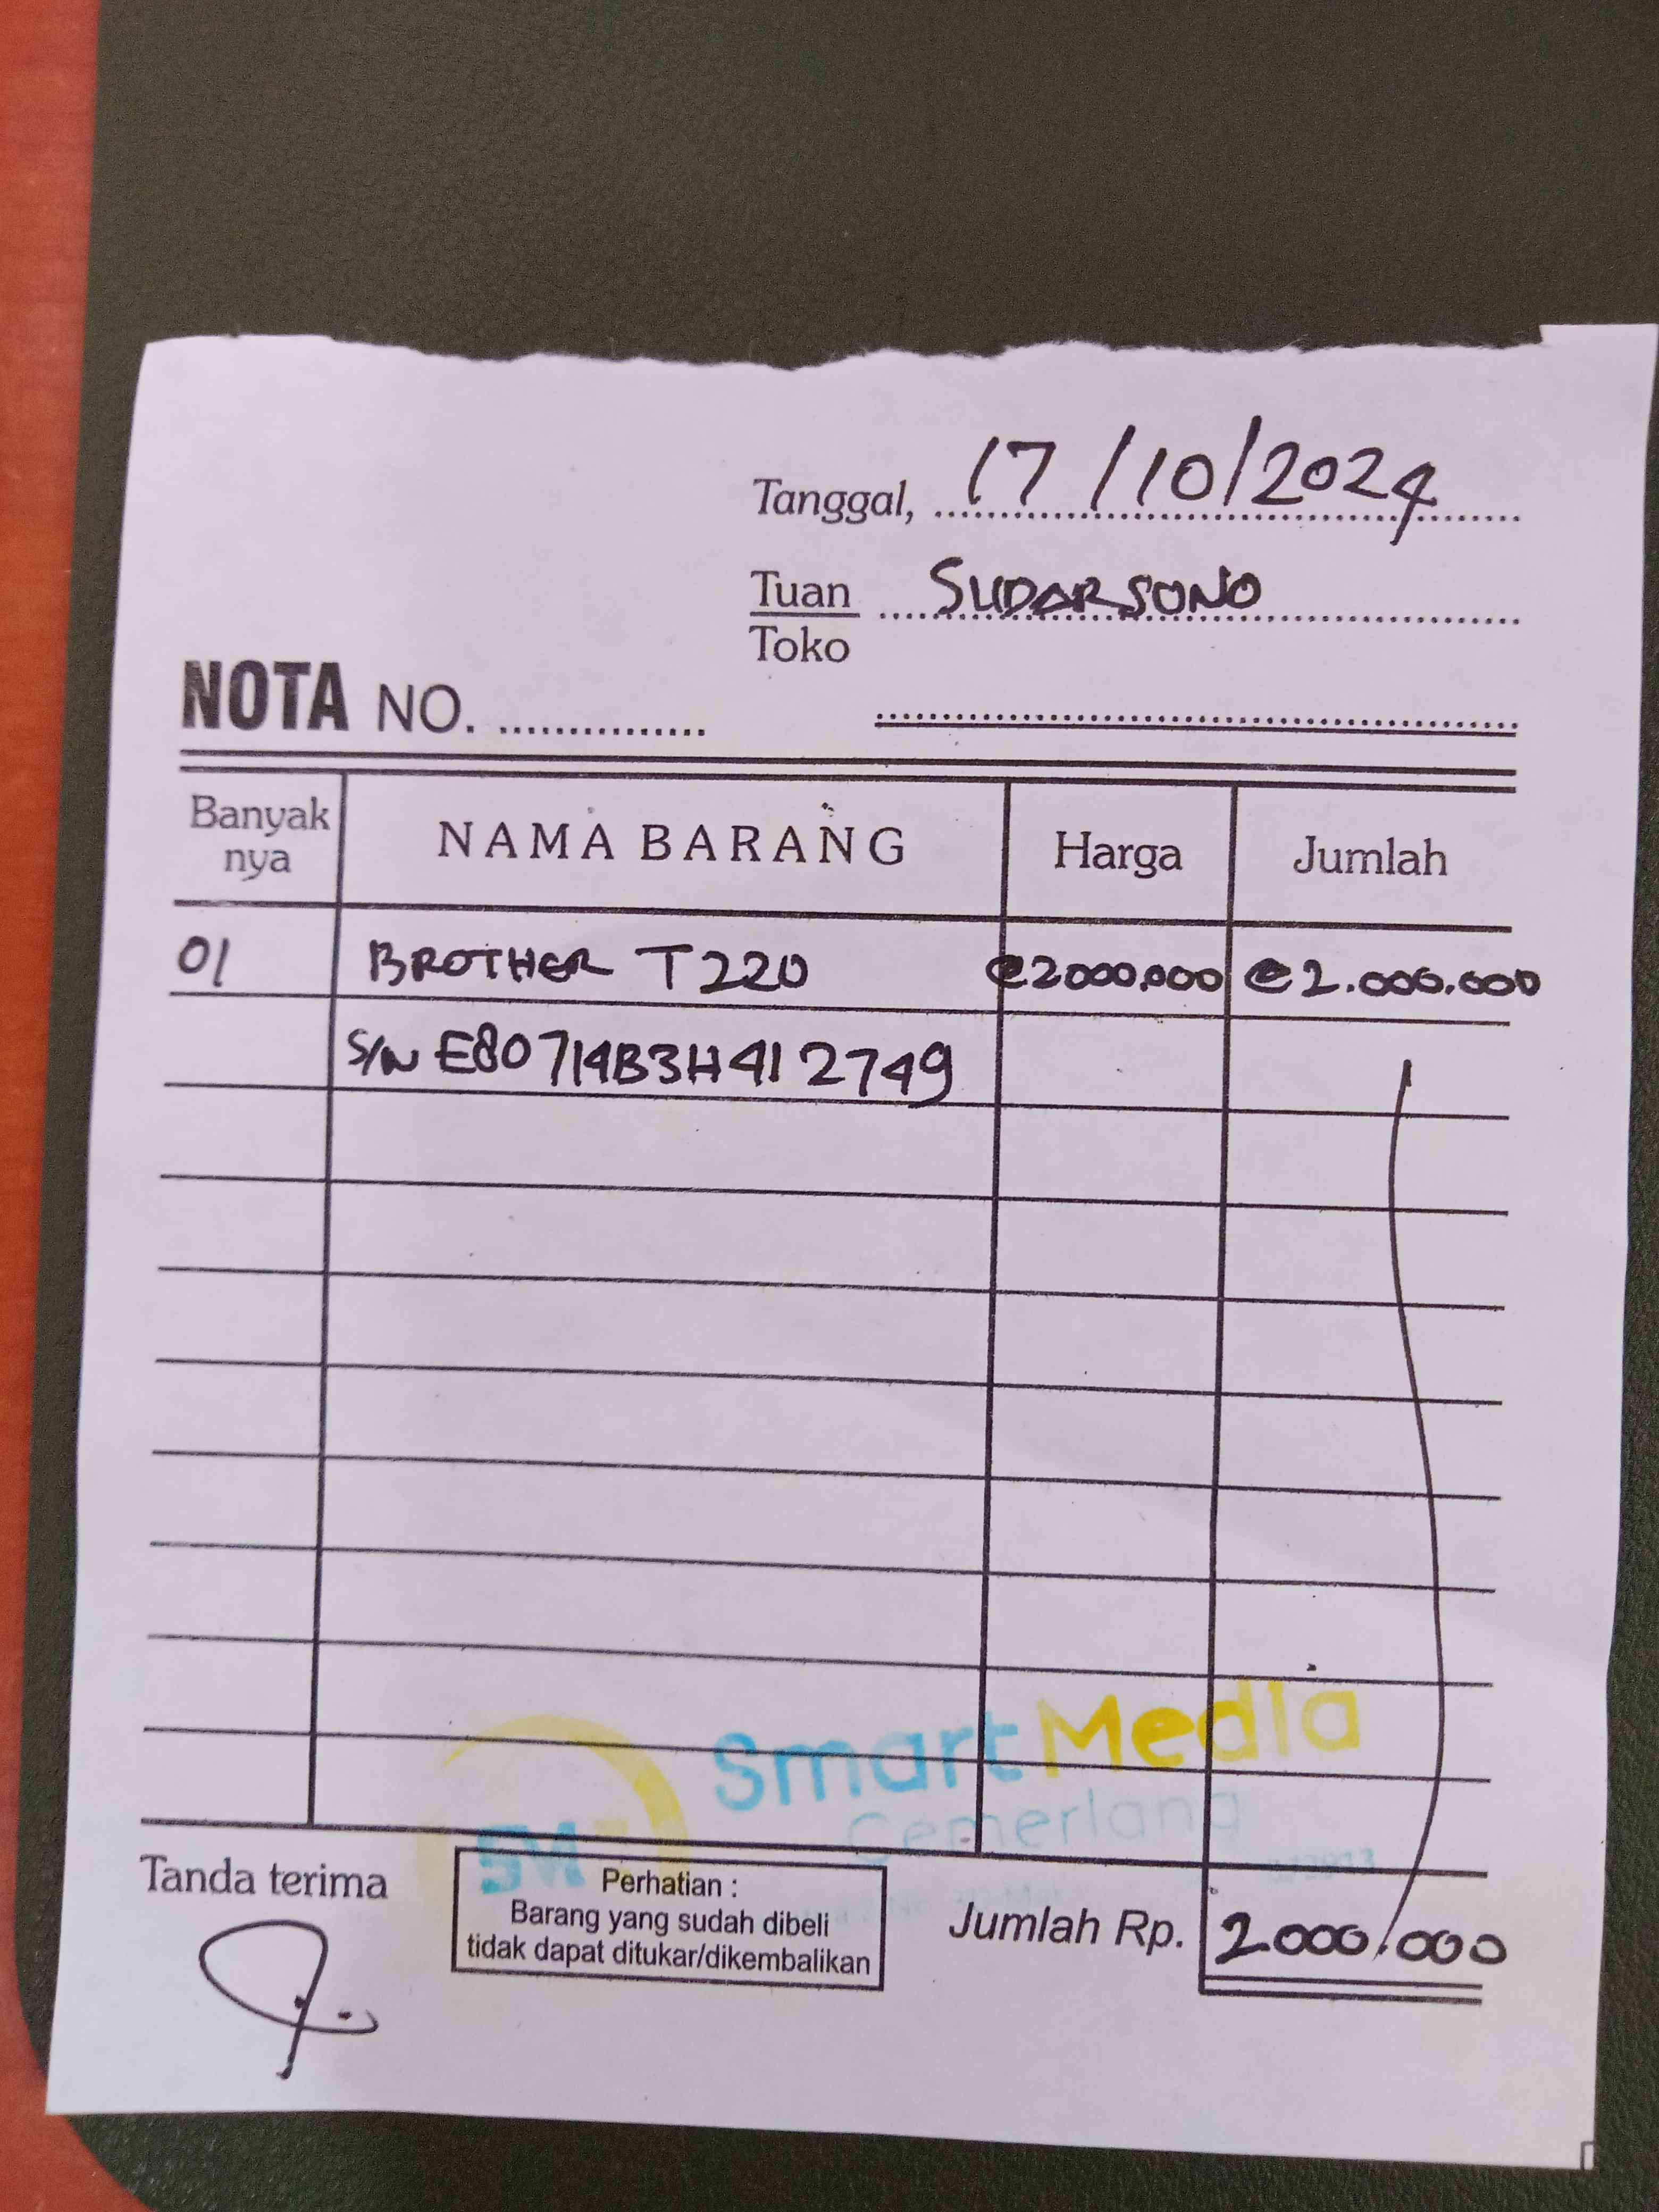 Tanggal, 17/10/2024
Tuan SUDARSONO
Toko
NOTA NO. ...............
Banyak nya NAMA BARANG Harga Jumlah
01 BROTHER T220 @2000.000 @2.000.000
S/N E80714B3H412749
Smart Media
Cemerlang
SM
Tanda terima
Perhatian :
Barang yang sudah dibeli
tidak dapat ditukar/dikembalikan
Jumlah Rp. 2.000.000